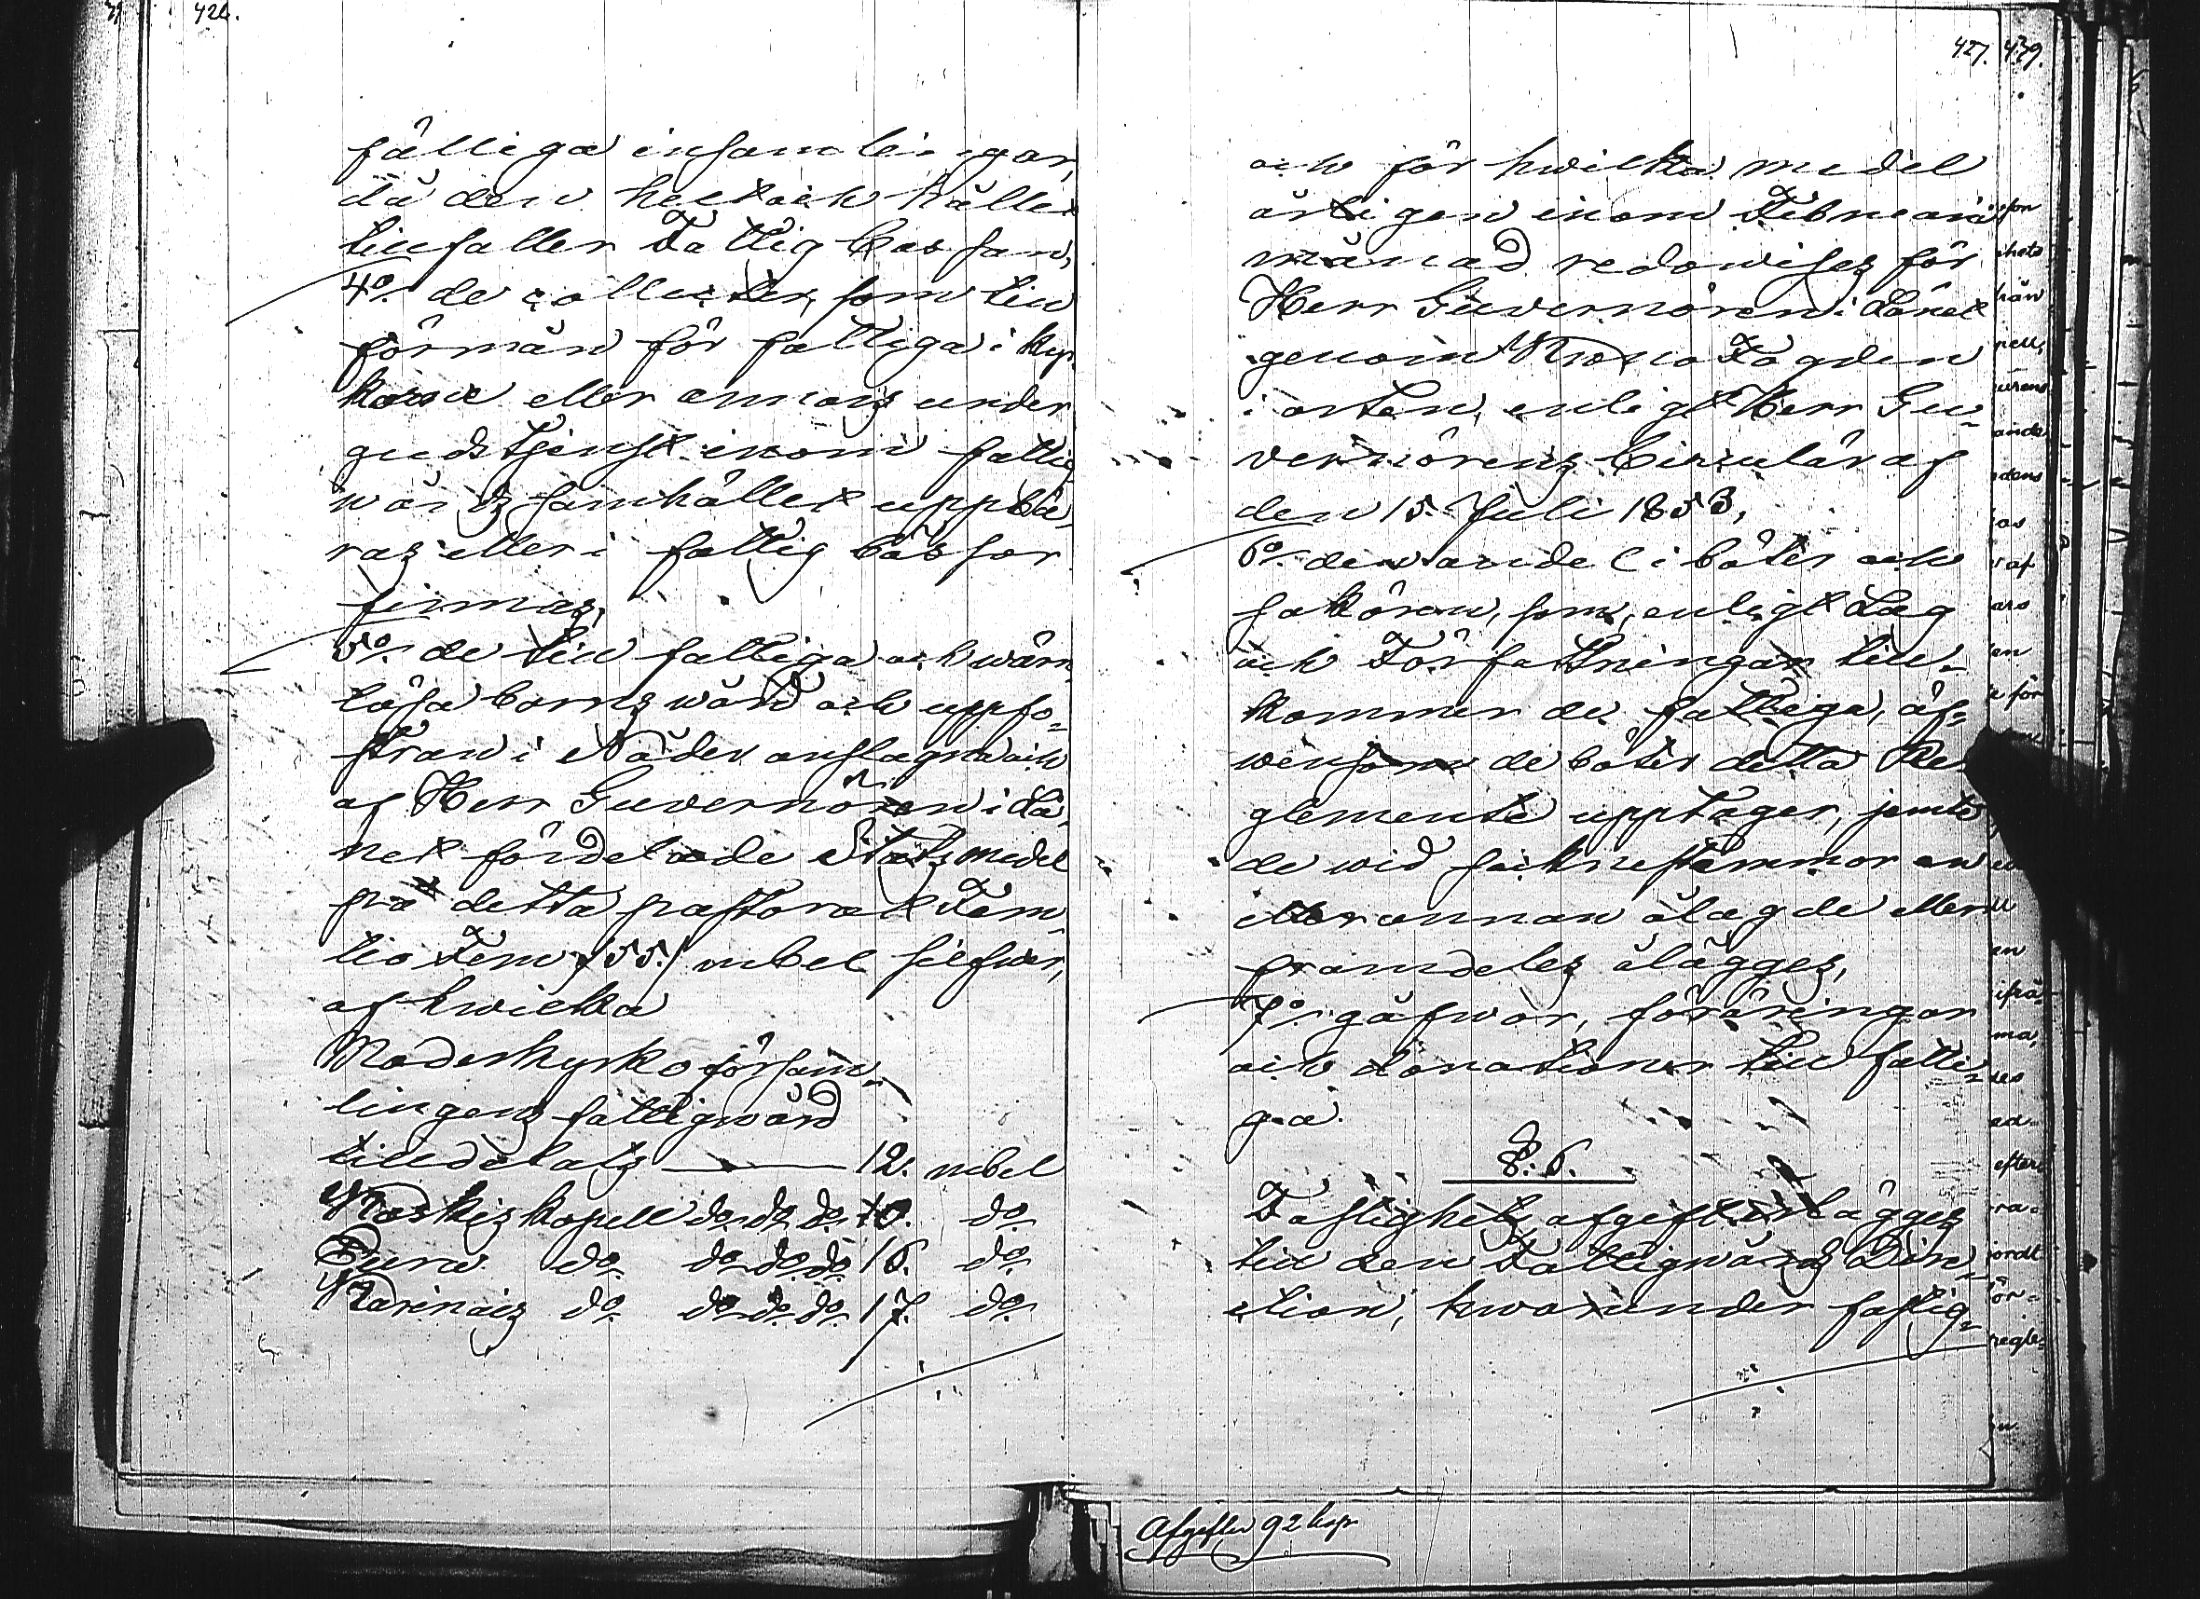 426.
fälliga insamlingar,
då den helt och hållet
tillfaller Fattig Cassan,
4o/. de collecter, som till
förmån för fattiga i kyr-
korne eller annars under
gudstjenst inom fattig
wårds samhället uppbä-
ras eller i fattig bössor
finnas,
5o/. de till fattiga och wärn-
lösa barns wård och uppfo-
stran i Nåder anslagna och
af Herr Guvernören i Lä-
net fördelade Statsmedel
på detta pastorat Fem-
tio Fem /55./ rubel silfwer,
af hwilka
Moderkyrko församm-
lingens fattigwård
tilldelats 12. rubel
Koskis kapell do do do 10. do
Euru do do do do 16. do
Karinais do do do do 17. do
427. 439.
och för hwilka medel
årligen inom Februari
månad redowises för
Herr Guvernören i Länet
genom Krono Fogden
i orten, enligt Herr Gu-
vernörens Circulär af
den 15. Juli 1853,
6o/. den andel i böter och
saköron, som, enligt Lag
och Författningar till-
kommer de fattiga, äf-
wensom de böter detta Re-
glemente upptager, jemte
de wid sockne stämmor en
eller annan ålagde eller
framdeles ålägges,
7o/. gåfwor, föräringar
och donationer till fatti-
ga.
§. 6.
Fastighets afgift erlägges
till den Fattigwårds Dire-
ction, hwarunder fastig-
Afgifter 92 kop